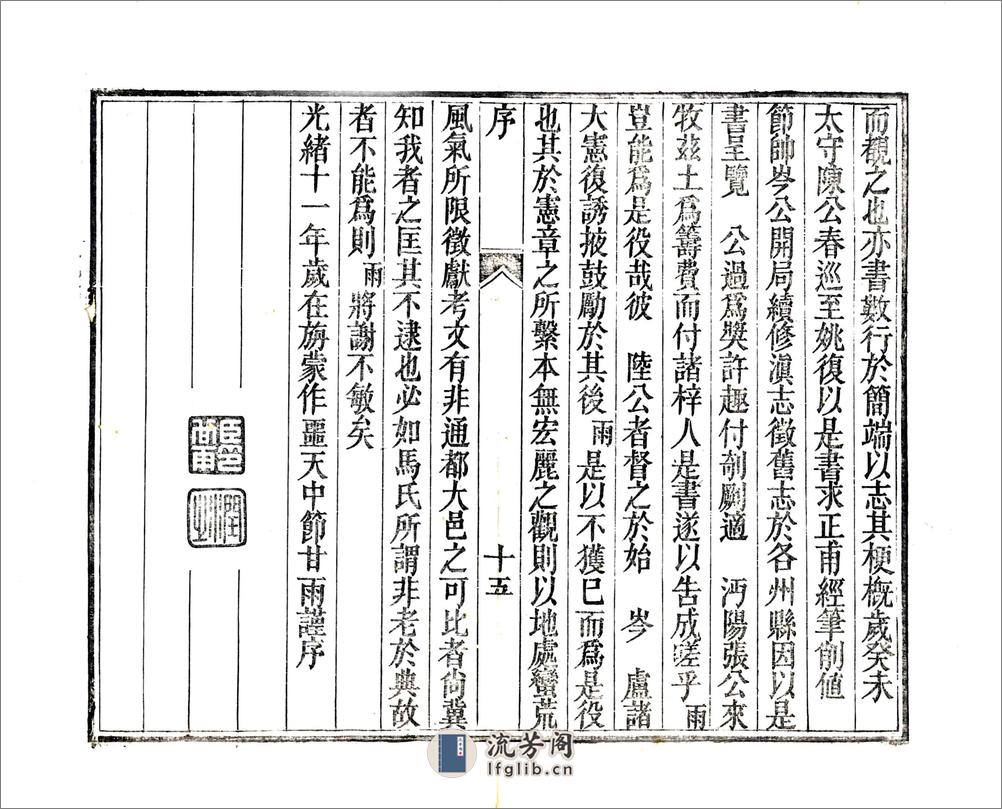 而觀之也亦書數行於簡端以志其梗概歲癸未
太守陳公春巡至姚復以是書求正甫經筆削值
節帥岑公開局續修滇志徵舊志於各州縣因以是
書呈覽　公過爲奬許趣付剞劂適　沔陽張公來
牧茲土爲籌費而付諸梓人是書遂以告成嗟乎雨
豈能爲是役哉彼　陸公者督之於始　岑　盧諸
大憲復誘掖鼓勵於其後雨是以不獲已而爲是役
也其於憲章之所繫本無宏麗之觀則以地處蠻荒
序　十五
風氣所限徵獻考文有非通都大邑之可比者尙冀
知我者之匡其不逮也必如馬氏所謂非老於典故
者不能爲則雨將謝不敏矣
光緒十一年歲在旃蒙作噩天中節甘雨謹序
流芳阁
lfglib.cn